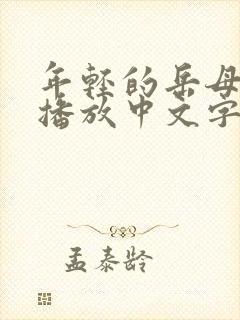 年轻的岳母
播放中文字
孟泰龄